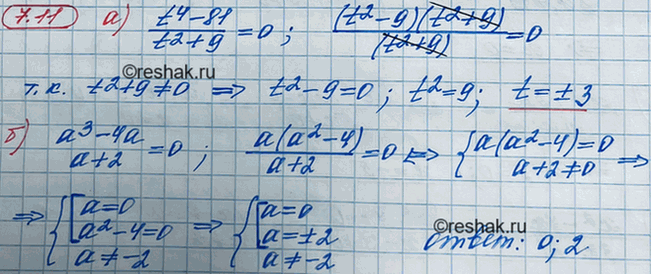 7.11 а) (t⁴-81)/(t²+9)=0; ((t²-9)(t²+9))/(t²+9)=0
©reshak.ru
т.к. t²+9≠0 ⇒ t²-9=0; t²=9; t=±3
б) (a³-4a)/(a+2)=0; (a(a²-4))/(a+2)=0 ⇔ { a(a²-4)=0
a+2≠0 ⇒
⇒ { [ a=0 ⇒ { [ a=0
a²-4=0 a=±2
a≠-2 a≠-2 ответ: 0; 2
©reshak.ru